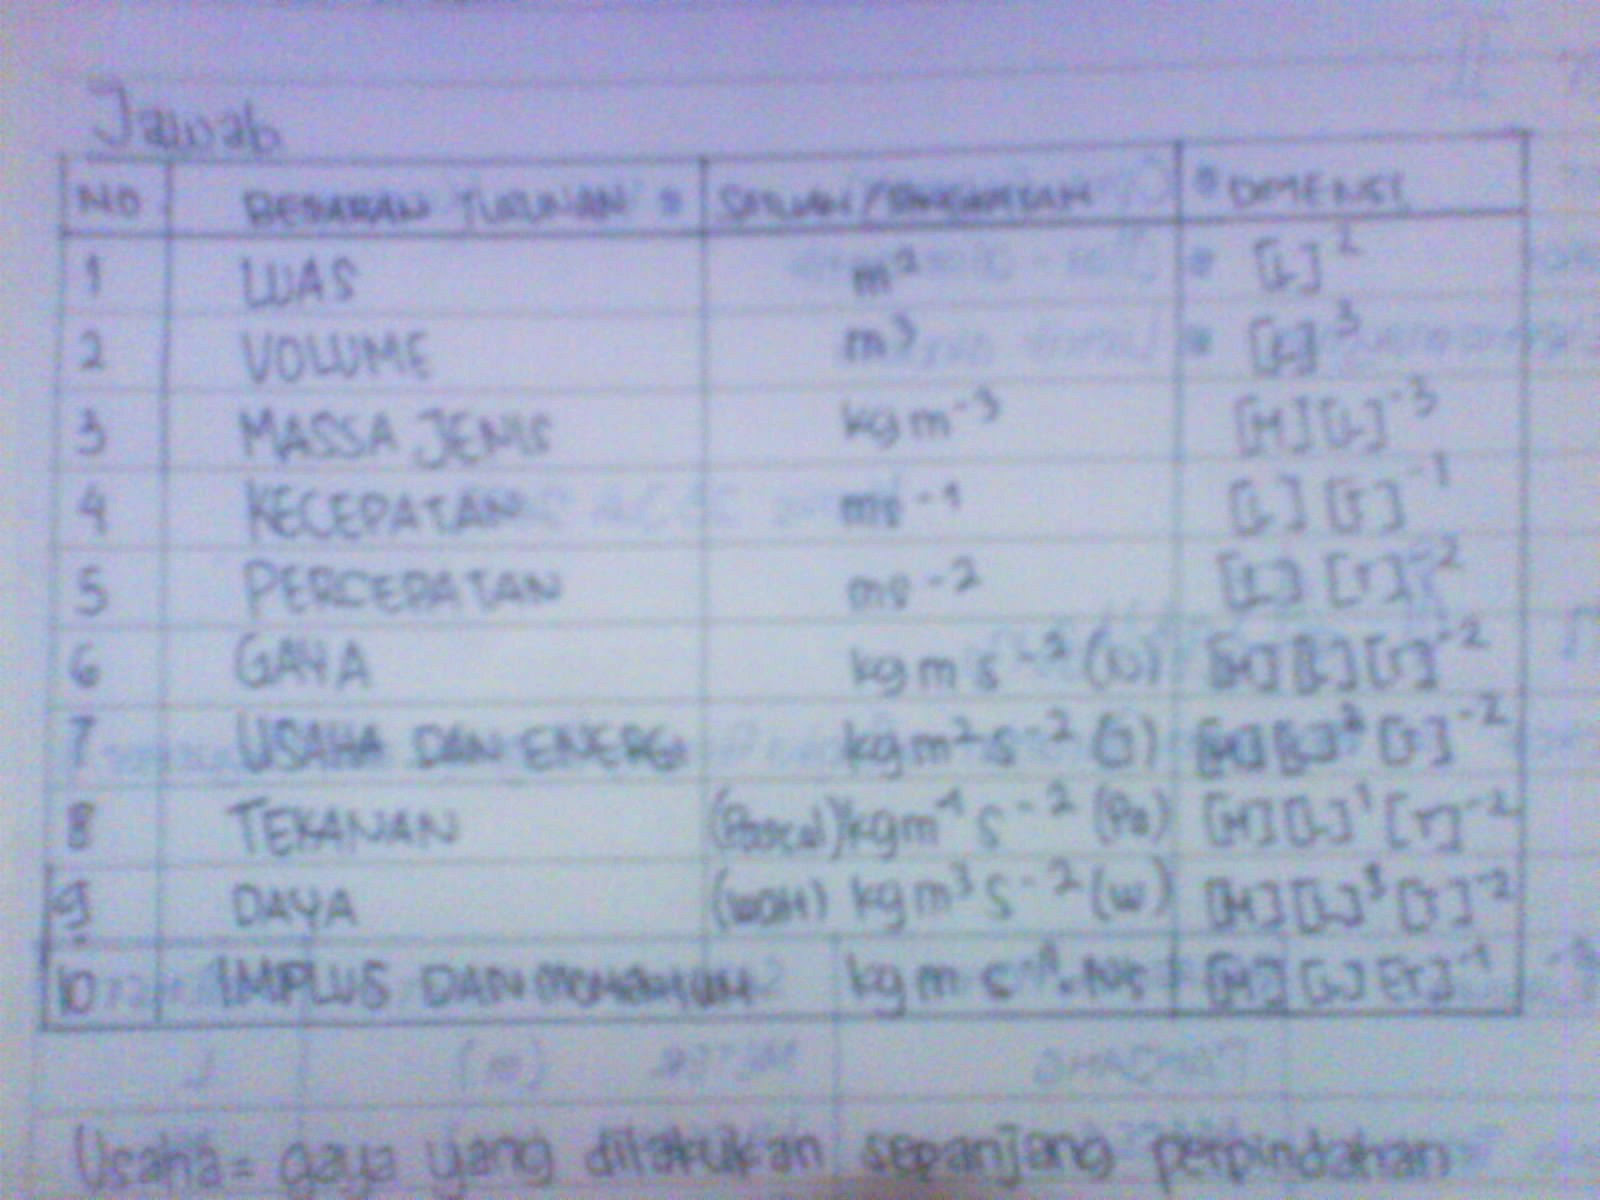 Jawab
NO BESARAN TURUNAN SATUAN / DIMENSI
1 LUAS m² [L]²
2 VOLUME m³ [L]³
3 MASSA JENIS kg m⁻³ [M][L]⁻³
4 KECEPATAN ms⁻¹ [L] [T]⁻¹
5 PERCEPATAN ms⁻² [L] [T]⁻²
6 GAYA kg m s⁻² (N) [M][L][T]⁻²
7 USAHA DAN ENERGI kg m² s⁻² (J) [M][L]² [T]⁻²
8 TEKANAN (Pascal) kg m⁻¹ s⁻² (Pa) [M][L]¹ [T]⁻²
9 DAYA kg m³ s⁻² (W) [M][L]³ [T]⁻²
10 IMPLUS DAN MOMENTUM kg m s⁻¹ . Ns [M][L][T]⁻¹
Usaha = gaya yang dilakukan sepanjang perpindahan